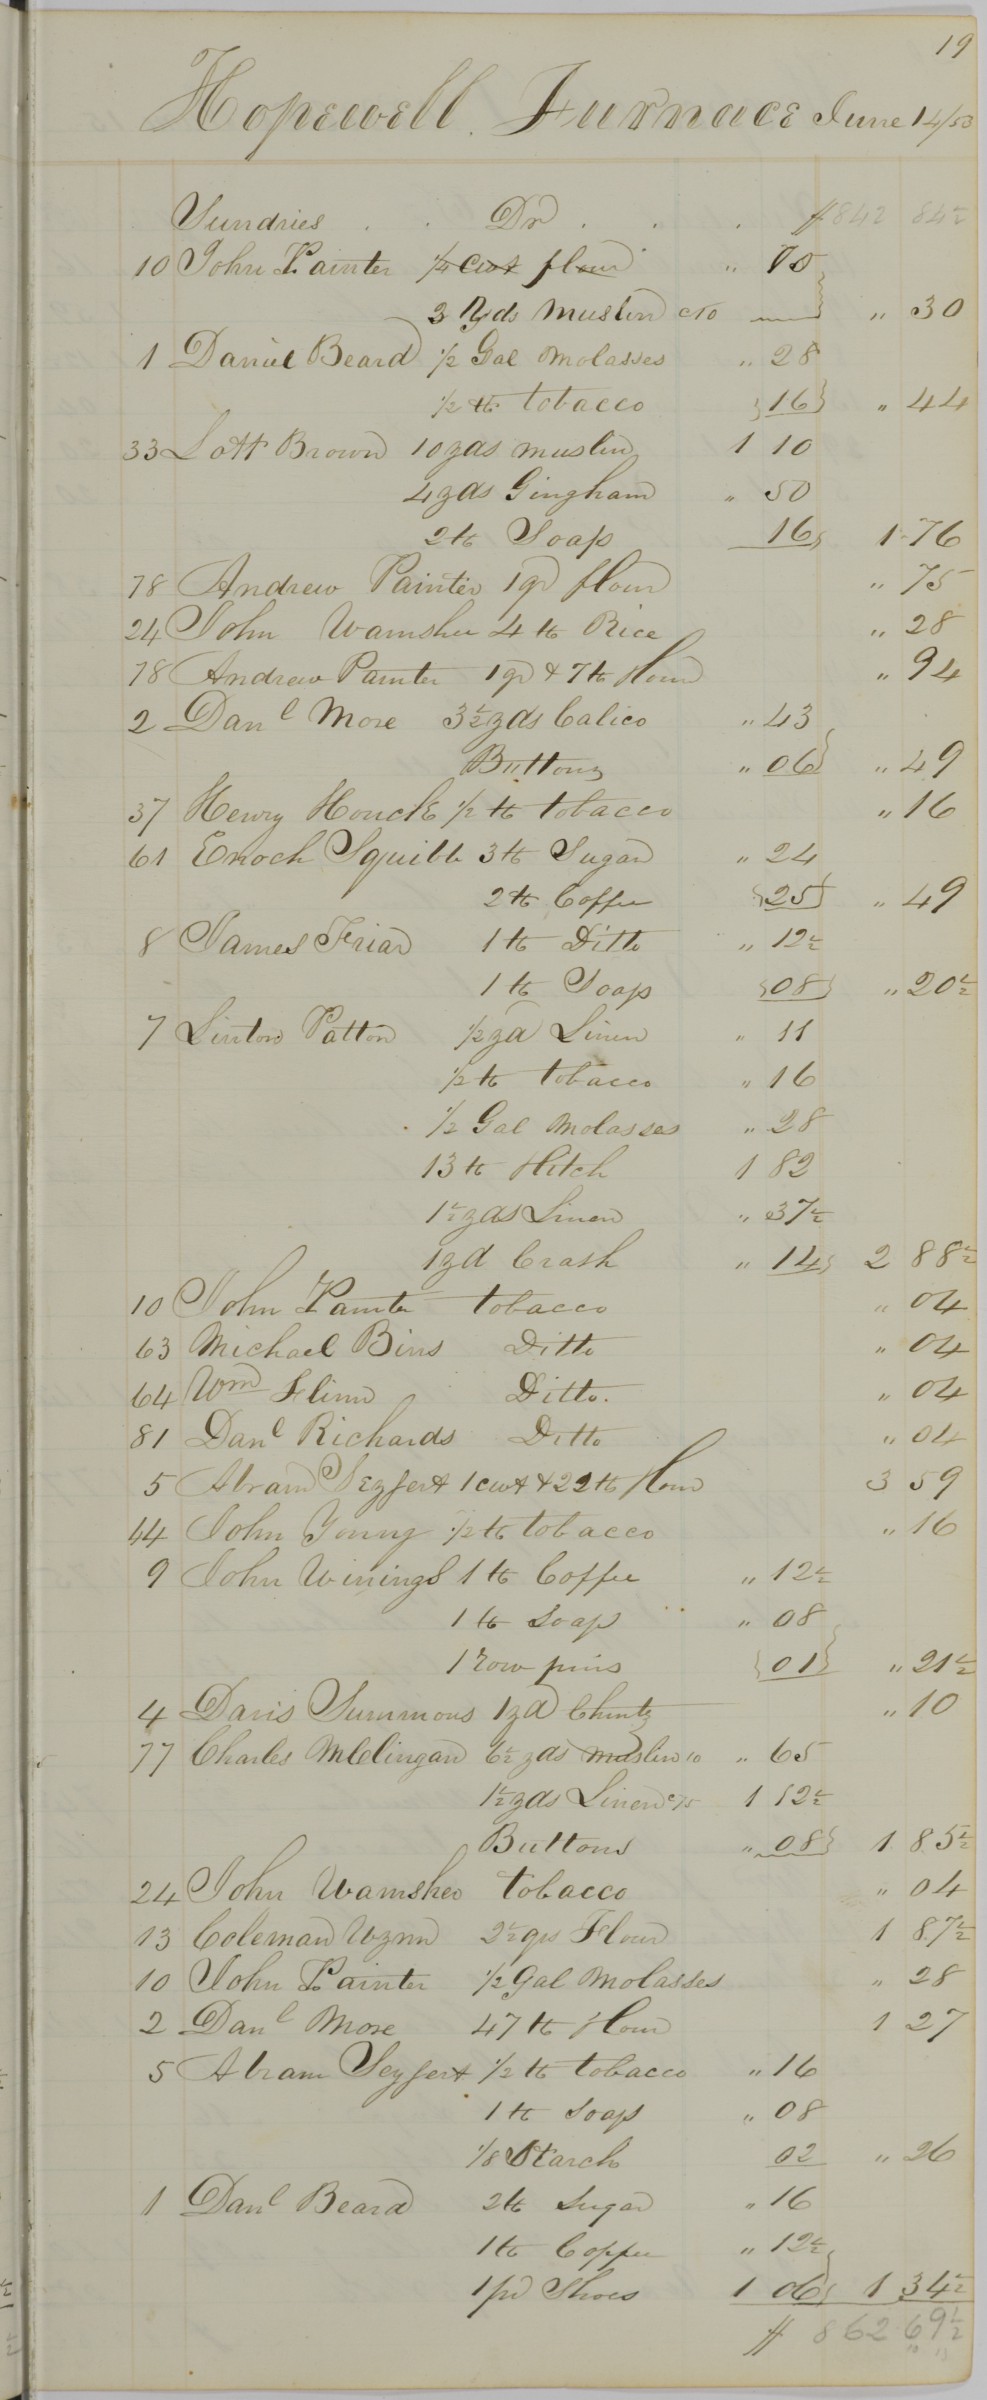 19
Hopewell Furnace June 14/53
Sundries . . Dr . . . $842 84½
10 John Painter ¼ cwt flour " 75
3 Yds Muslin c10 " 30
1 Daniel Beard ½ Gal Molasses " 28
½ lb tobacco 16 " 44
33 Lott Brown 10 yds muslin 1 10
4 yds Gingham " 50
2 lb Soap 16 1 76
78 Andrew Painter 1 qr flour " 75
24 John Wamsher 4 lb Rice " 28
78 Andrew Painter 1 qr & 7 lb flour " 94
2 Danl More 3½ yds Calico " 43
Buttons " 06 " 49
37 Henry Houck ½ lb tobacco " 16
61 Enoch Squibb 3 lb Sugar " 24
2 lb Coffee 25 " 49
8 James Friar 1 lb Ditto " 12½
1 lb Soap 08 " 20½
7 Linton Patton ½ yd Linen " 11
½ lb tobacco " 16
½ Gal Molasses " 28
13 lb Flitch 1 82
1½ yds Linen " 37½
1 yd Crash " 14 2 88½
10 John Painter tobacco " 04
63 Michael Bins Ditto " 04
64 Wm Flinn Ditto. " 04
81 Danl Richards Ditto " 04
5 Abram Seyfert 1 cwt & 22 lb flour 3 59
44 John Young ½ lb tobacco " 16
9 John Winings 1 lb Coffee " 12½
1 lb Soap " 08
1 row pins 01 " 21½
4 Davis Summons 1 yd Chintz " 10
77 Charles McClingan 6½ yds muslin 10 " 65
1½ yds Linen c75 1 12½
Buttons " 08 1 85½
24 John Wamsher tobacco " 04
13 Coleman Wynn 2½ qrs Flour 1 87½
10 John Painter ½ Gal Molasses " 28
2 Danl More 47 lb flour 1 27
5 Abram Seyfert ½ lb tobacco " 16
1 lb Soap " 08
⅛ Starch 02 " 26
1 Danl Beard 2 lb Sugar " 16
1 lb Coffee " 12½
1 pr Shoes 1 06 1 34½
$ 862 69½